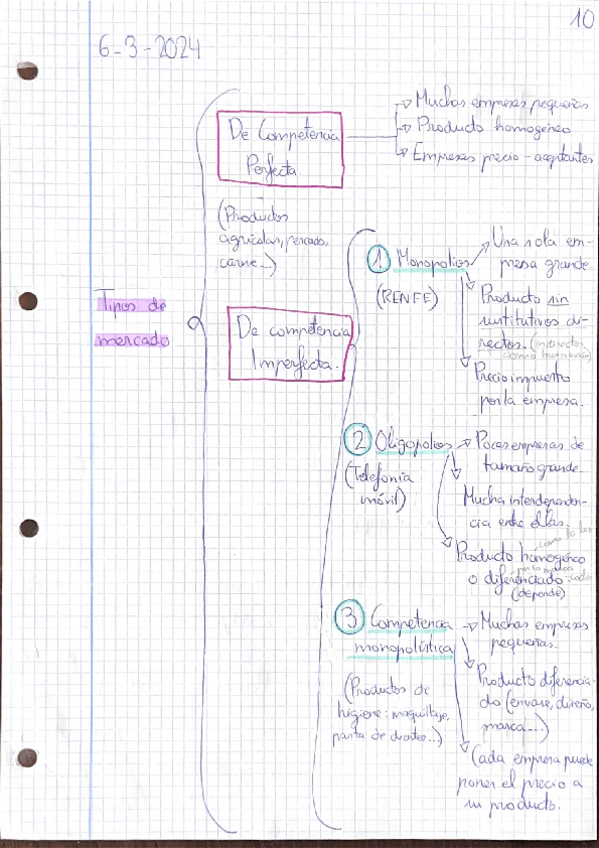 10
6-3-2024
De Competencia
Perfecta
→ Muchas empresas pequeñas
→ Producto homogéneo
→ Empresas precio-aceptantes
(Productos
agrícolas, pescado,
carne...)
Tipos de
mercado
De competencia
Imperfecta.
1 Monopolios
(RENFE)
→ Una sola em-
presa grande.
Producto sin
sustitutivos di-
rectos.
Precio impuesto
por la empresa.
2 Oligopolios
(Telefonía
móvil)
→ Pocas empresas de
tamaño grande.
Mucha interdependen-
cia entre ellas.
Producto homogéneo
o diferenciado
(depende)
3 Competencia
monopolística
(Productos de
higiene: maquillaje,
pasta de dientes...)
→ Muchas empresas
pequeñas.
Producto diferencia-
do (envase, diseño,
marca...)
Cada empresa puede
poner el precio a
su producto.